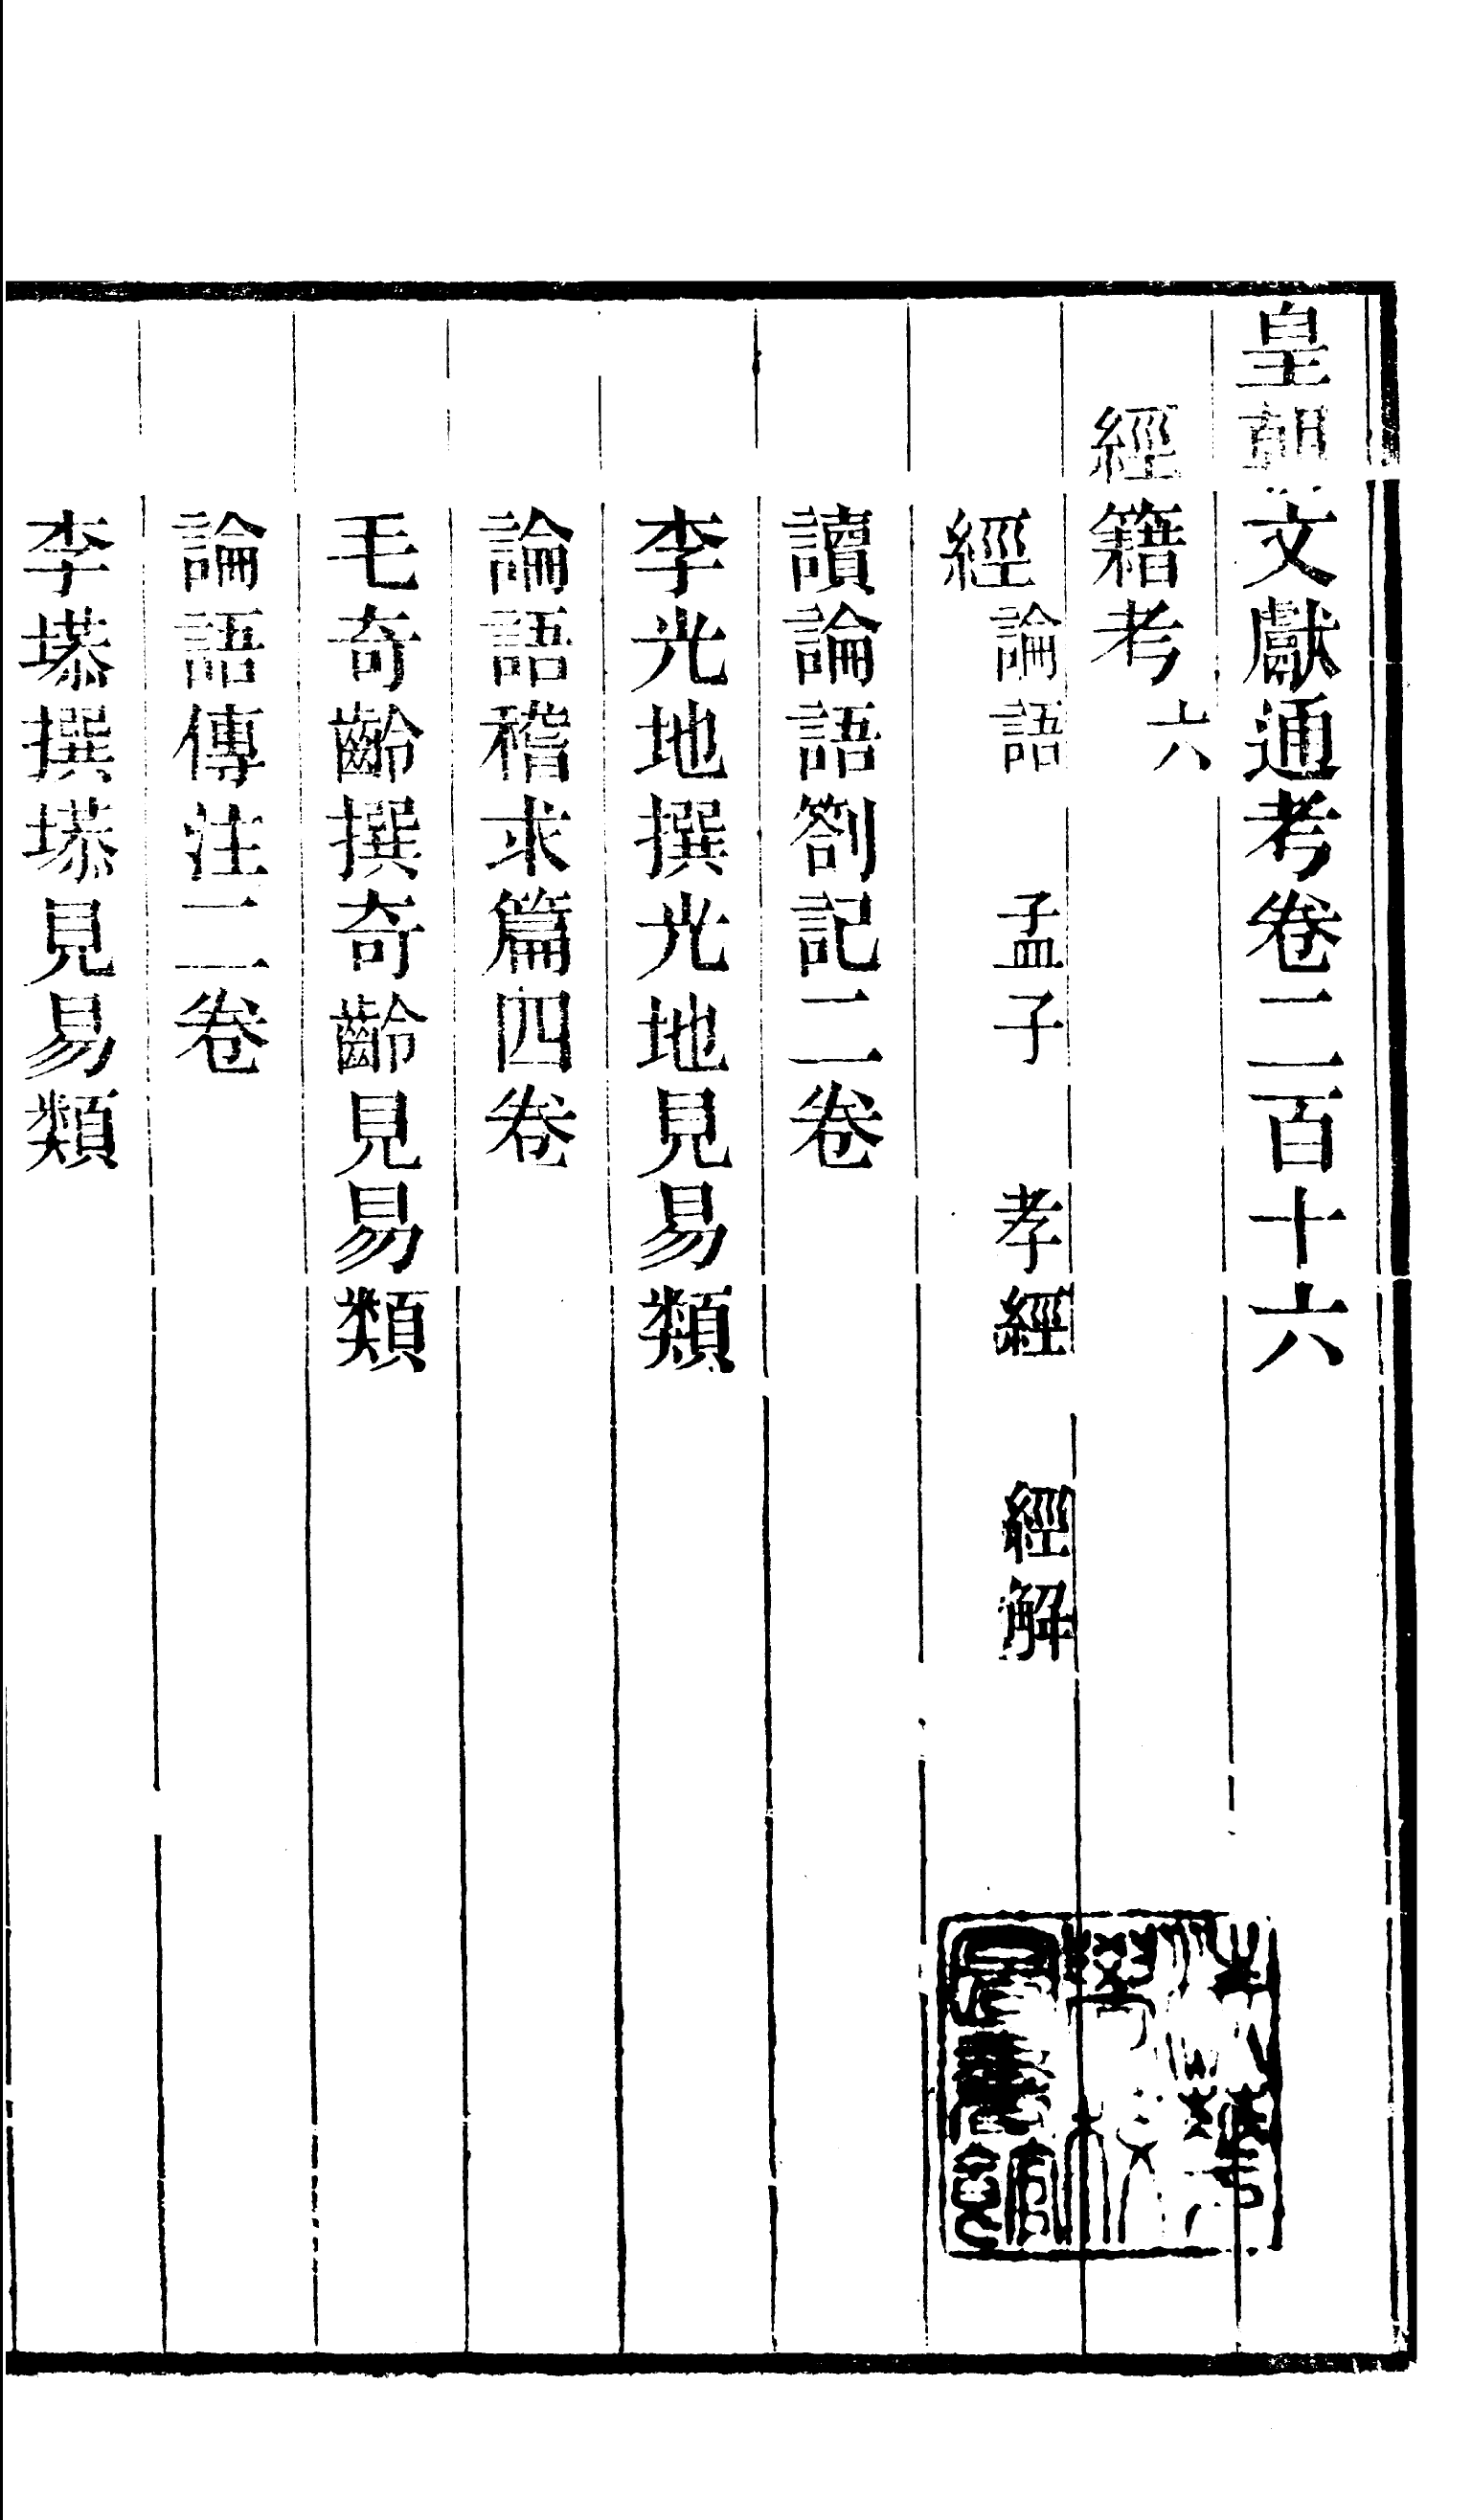 皇朝文獻通考卷二百十六
經籍考六
經 論語 孟子 孝經 經解
讀論語劄記二卷
李光地撰光地見易類
論語稽求篇四卷
毛奇齡撰奇齡見易類
論語傳注二卷
李塨撰塨見易類